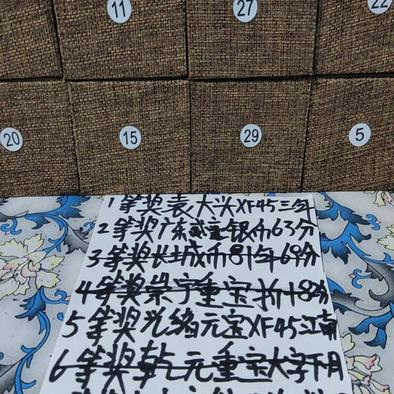 11 27 22
20 15 29 5
1等奖袁大头XF45三年
2等奖广东 银币63分
3等奖长城币81年69分
4等奖崇宁重宝折十8分
5等奖光绪元宝XF45江南
6等奖乾元重宝大字下月